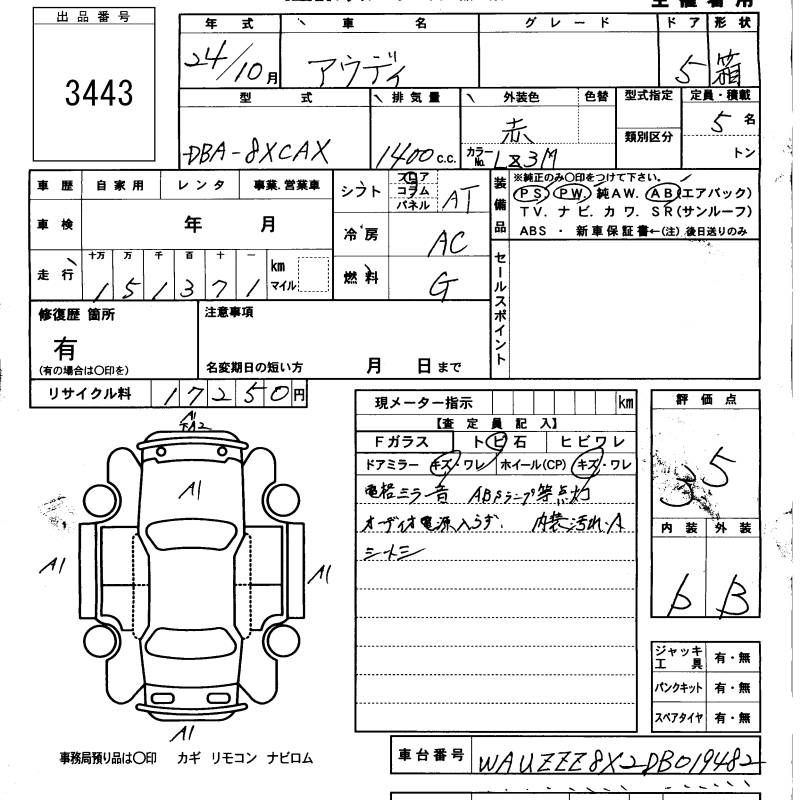 出品番号
3443
年式 車名 グレード ドア 形状
24/10月 アウディ 5 箱
型式 排気量 外装色 色替 型式指定 定員・積載
DBA-8XCAX 1400c.c. 赤 5名
カラーNo. LZ3M 類別区分 トン
車歴 自家用 レンタ 事業.営業車
車検 年 月
走行 十万 万 千 百 十 一
151371 km マイル
シフト フロア コラム パネル AT
冷房 AC
燃料 G
装備品
※純正のみ〇印をつけて下さい。
PS. PW. 純AW. AB(エアバック)
TV. ナビ. カワ. SR(サンルーフ)
ABS ・ 新車保証書←(注) 後日送りのみ
セールスポイント
修復歴 箇所
有
(有の場合は〇印を)
注意事項
名変期日の短い方 月 日まで
リサイクル料 17250円
現メーター指示 km
【査定員記入】
Fガラス トビ石 ヒビワレ
ドアミラー キズ・ワレ ホイール(CP) キズ・ワレ
電格ミラー音 ABSランプ等点灯
オーディオ電源入らず. 内装汚れ・A
シートシミ
評価点
3.5
内装 外装
D B
ジャッキ工具 有・無
パンクキット 有・無
スペアタイヤ 有・無
A1
A1
A1
A1
A1
事務局預り品は〇印 カギ リモコン ナビロム
車台番号 WAUZZZ8X2DB019482